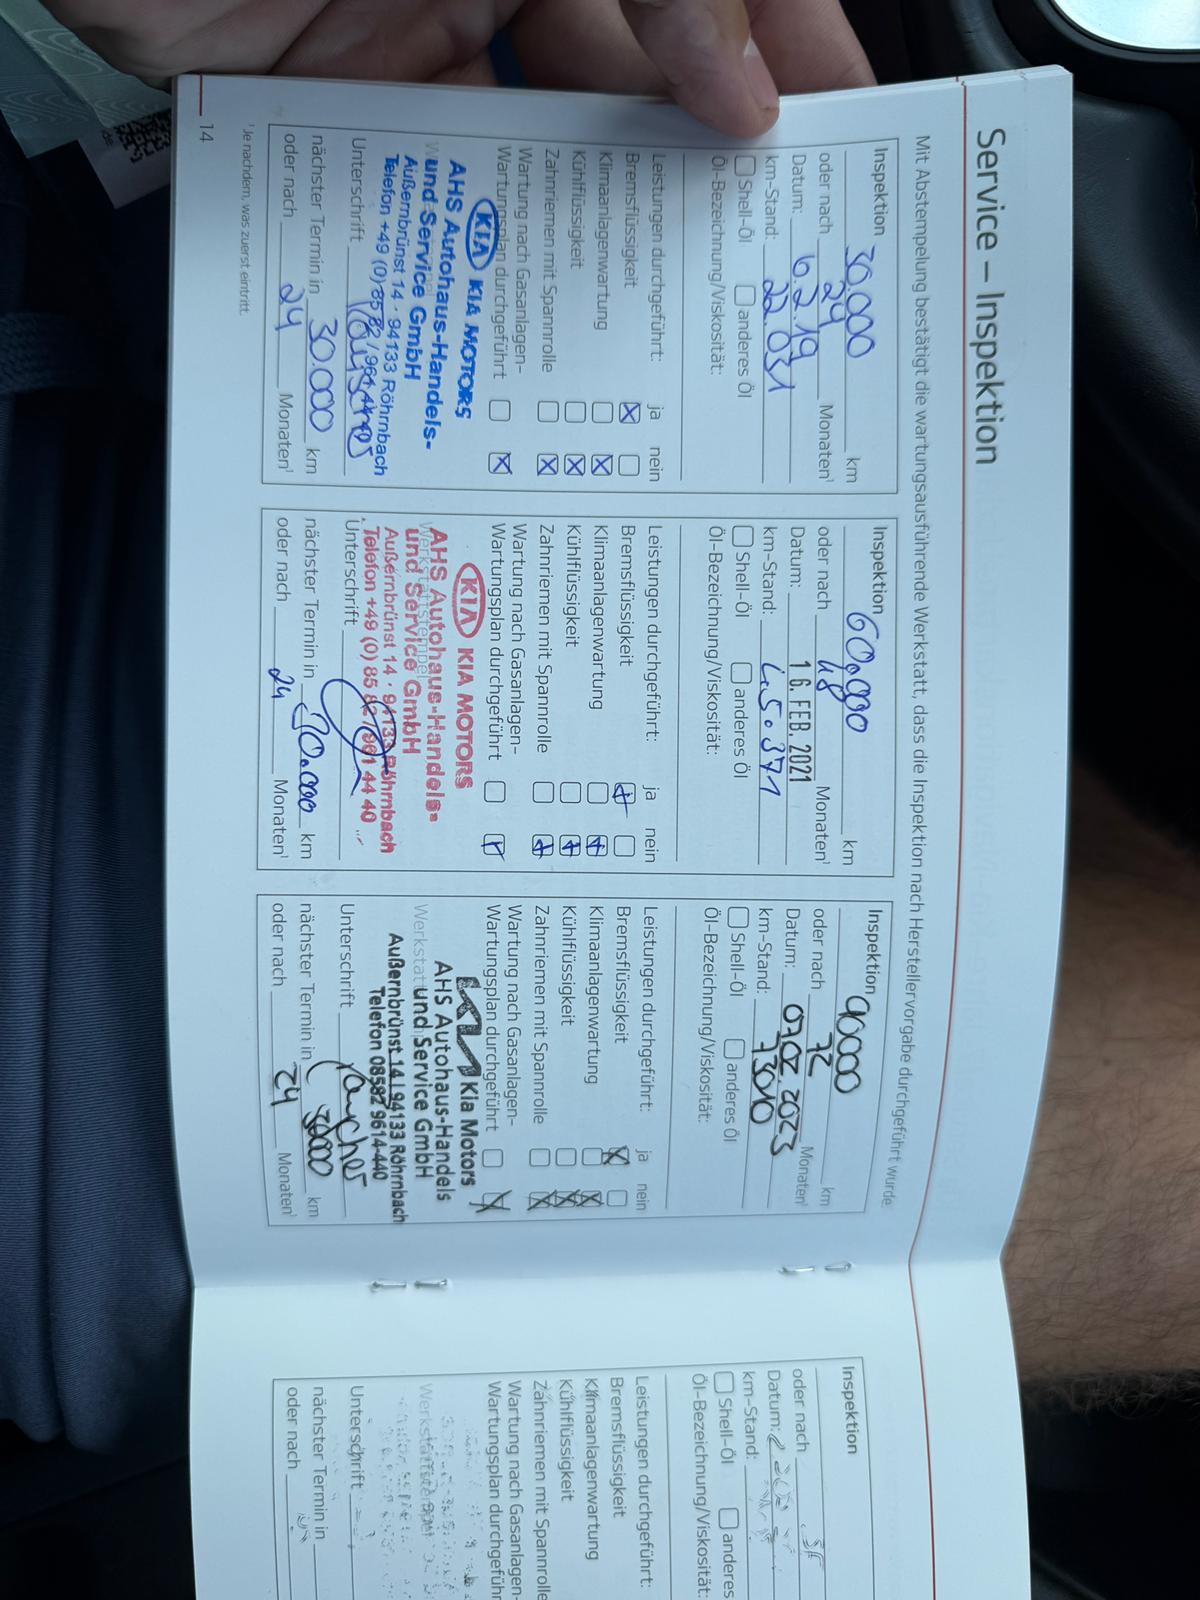 Service – Inspektion
Mit Abstempelung bestätigt die wartungsausführende Werkstatt, dass die Inspektion nach Herstellervorgabe durchgeführt wurde.
Inspektion 30.000 km
oder nach 24 Monaten¹
Datum: 6.2.19
km-Stand: 22.031
Shell-Öl anderes Öl
Öl-Bezeichnung/Viskosität:
Leistungen durchgeführt: ja nein
Bremsflüssigkeit
Klimaanlagenwartung
Kühlflüssigkeit
Zahnriemen mit Spannrolle
Wartung nach Gasanlagen-
Wartungsplan durchgeführt
KIA KIA MOTORS
AHS Autohaus-Handels-
und Service GmbH
Außernbrünst 14 · 94133 Röhrnbach
Telefon +49 (0) 85 82 / 961 44 40
Unterschrift
nächster Termin in 30.000 km
oder nach 24 Monaten¹
¹Je nachdem, was zuerst eintritt.
14
Inspektion 60.000 km
oder nach 48 Monaten¹
Datum: 16. FEB. 2021
km-Stand: 45.371
Shell-Öl anderes Öl
Öl-Bezeichnung/Viskosität:
Leistungen durchgeführt: ja nein
Bremsflüssigkeit
Klimaanlagenwartung
Kühlflüssigkeit
Zahnriemen mit Spannrolle
Wartung nach Gasanlagen-
Wartungsplan durchgeführt
KIA KIA MOTORS
Werkstattstempel
AHS Autohaus-Handels-
und Service GmbH
Außernbrünst 14 · 94133 Röhrnbach
Telefon +49 (0) 85 82 / 961 44 40
Unterschrift
nächster Termin in km
oder nach 24 Monaten¹
Inspektion 90000 km
oder nach 72 Monaten¹
Datum: 07.02.2023
km-Stand: 73010
Shell-Öl anderes Öl
Öl-Bezeichnung/Viskosität:
Leistungen durchgeführt: ja nein
Bremsflüssigkeit
Klimaanlagenwartung
Kühlflüssigkeit
Zahnriemen mit Spannrolle
Wartung nach Gasanlagen-
Wartungsplan durchgeführt
KIA Kia Motors
AHS Autohaus-Handels
und Service GmbH
Außernbrünst 14 | 94133 Röhrnbach
Telefon 08582 9614-440
Unterschrift
nächster Termin in 30000 km
oder nach 24 Monaten¹
Inspektion
oder nach
Datum:
km-Stand:
Shell-Öl anderes
Öl-Bezeichnung/Viskosität:
Leistungen durchgeführt:
Bremsflüssigkeit
Klimaanlagenwartung
Kühlflüssigkeit
Zahnriemen mit Spannrolle
Wartung nach Gasanlagen-
Wartungsplan durchgeführ
Werkstattstempel
Unterschrift
nächster Termin in
oder nach